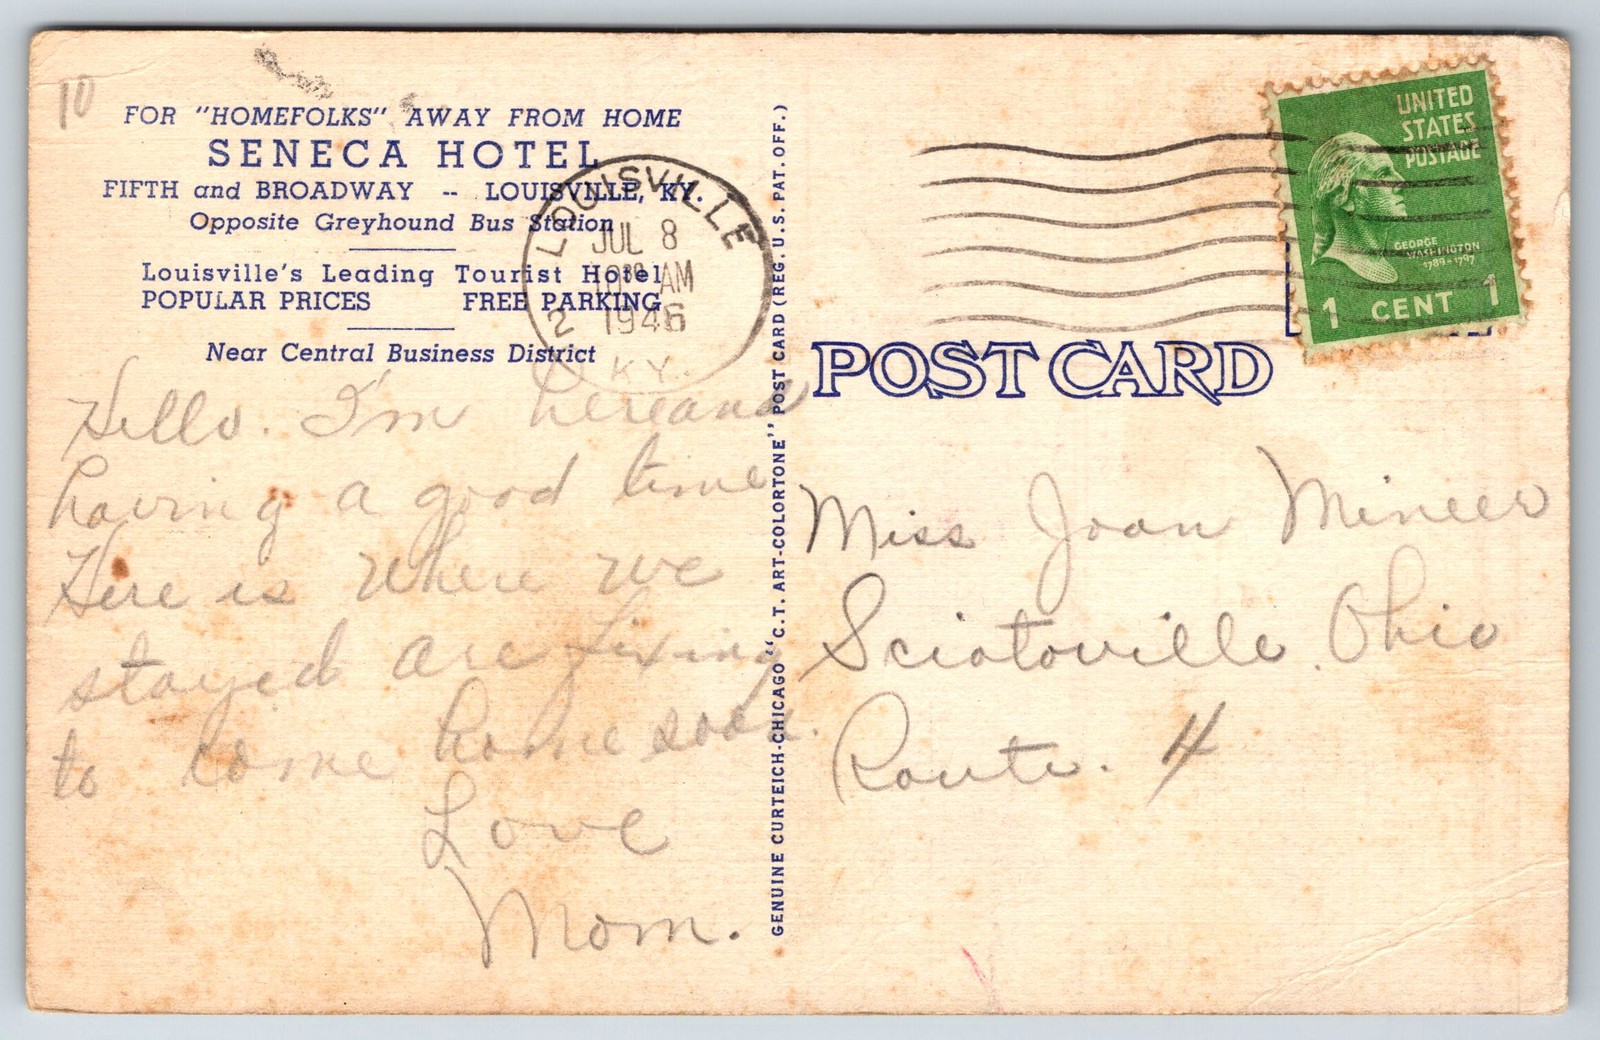 10
FOR "HOMEFOLKS" AWAY FROM HOME
SENECA HOTEL
FIFTH and BROADWAY -- LOUISVILLE, KY.
Opposite Greyhound Bus Station
Louisville's Leading Tourist Hotel
POPULAR PRICES FREE PARKING
Near Central Business District
LOUISVILLE
JUL 8
10 30 AM
1946
2
KY.
Hello. I'm here and
having a good time
Here is where we
stayed are fixing
to come home soon.
Love
Mom.
GENUINE CURTEICH-CHICAGO "C.T. ART-COLORTONE" POST CARD (REG. U.S. PAT. OFF.)
UNITED
STATES
POSTAGE
GEORGE
WASHINGTON
1789-1797
1 CENT 1
POST CARD
Miss Joan Mineer
Sciotoville. Ohio
Route. 4